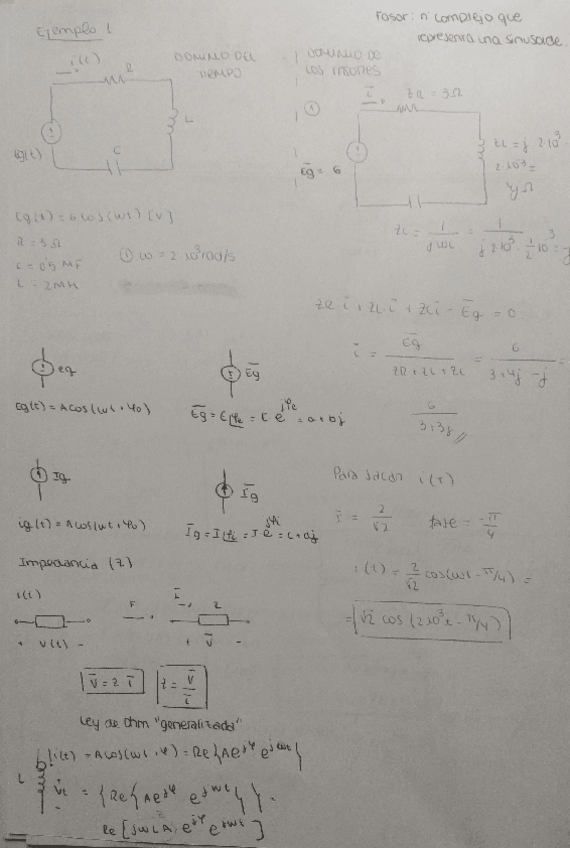 Fasor: nº complejo que
representa una sinusoide.
Ejemplo 1
i(t)
R
L
C
Eg(t)
DOMINIO DEL
TIEMPO
DOMINIO DE
LOS FASORES
①
i
ZR = 3Ω
ZL = j 2·10³ ·
2·10³ =
4jΩ
Eg = 6
Eg(t) = 6 cos(wt) [V]
R = 3 Ω
C = 0'5 MF
L = 2MH
① ω = 2·10³ rad/s
Zc = 1/jωc = 1/(j 2·10³ · 1/2 10³) = -j
ZR i + ZL i + Zc i - Eg = 0
i = Eg/(ZR + ZL + Zc) = 6/(3+4j-j) =
6/(3+3j)
eg
Eg(t) = A cos(wt + φ0)
Eg
Eg = E∠φe = E e^jφe = a + bj
Ig
ig(t) = A cos(wt + φ0)
Ig
Ig = I∠φi = I e^jφi = c + dj
Para sacar i(t)
i = 2/√2 fase = -π/4
i(t) = 2/√2 cos(wt - π/4) =
= √2 cos (2·10³t - π/4)
Impedancia (Z)
i(t)
+ V(t) -
F
i
Z
+ V -
V = Z · i
Z = V/i
Ley de Ohm "generalizada"
L
i(t) = A cos(wt + φ) = Re{A e^jφ e^jwt}
VL = {Re{A e^jφ · e^jwt}} ·
Re [jWLA · e^jφ e^jwt]